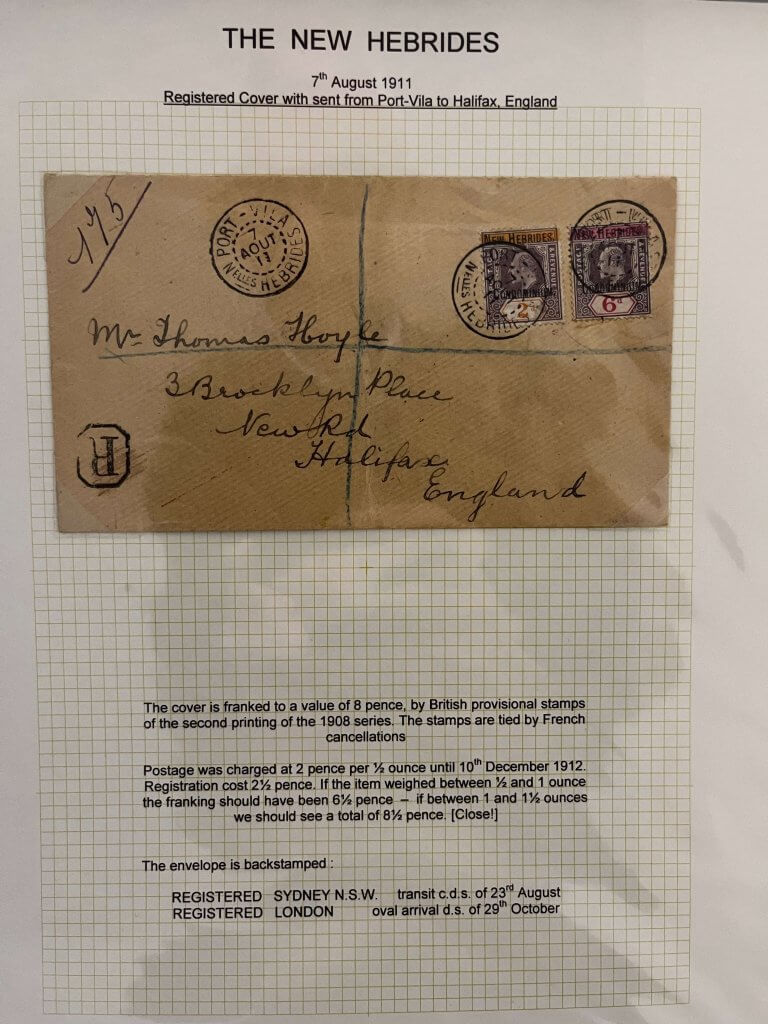 THE NEW HEBRIDES
7th August 1911
Registered Cover with sent from Port-Vila to Halifax, England
175
PORT-VILA
7
AOUT
11
NELLES HEBRIDES
NEW HEBRIDES
POSTAGE
& REVENUE
CONDOMINIUM
2d
NELLES HEBRIDES
NEW HEBRIDES
POSTAGE
& REVENUE
CONDOMINIUM
6d
Mr Thomas Hoyle
3 Brocklyn Place
New Rd
Halifax
England
R
The cover is franked to a value of 8 pence, by British provisional stamps
of the second printing of the 1908 series. The stamps are tied by French
cancellations
Postage was charged at 2 pence per ½ ounce until 10th December 1912.
Registration cost 2½ pence. If the item weighed between ½ and 1 ounce
the franking should have been 6½ pence – if between 1 and 1½ ounces
we should see a total of 8½ pence. [Close!]
The envelope is backstamped :
REGISTERED SYDNEY N.S.W. transit c.d.s. of 23rd August
REGISTERED LONDON oval arrival d.s. of 29th October